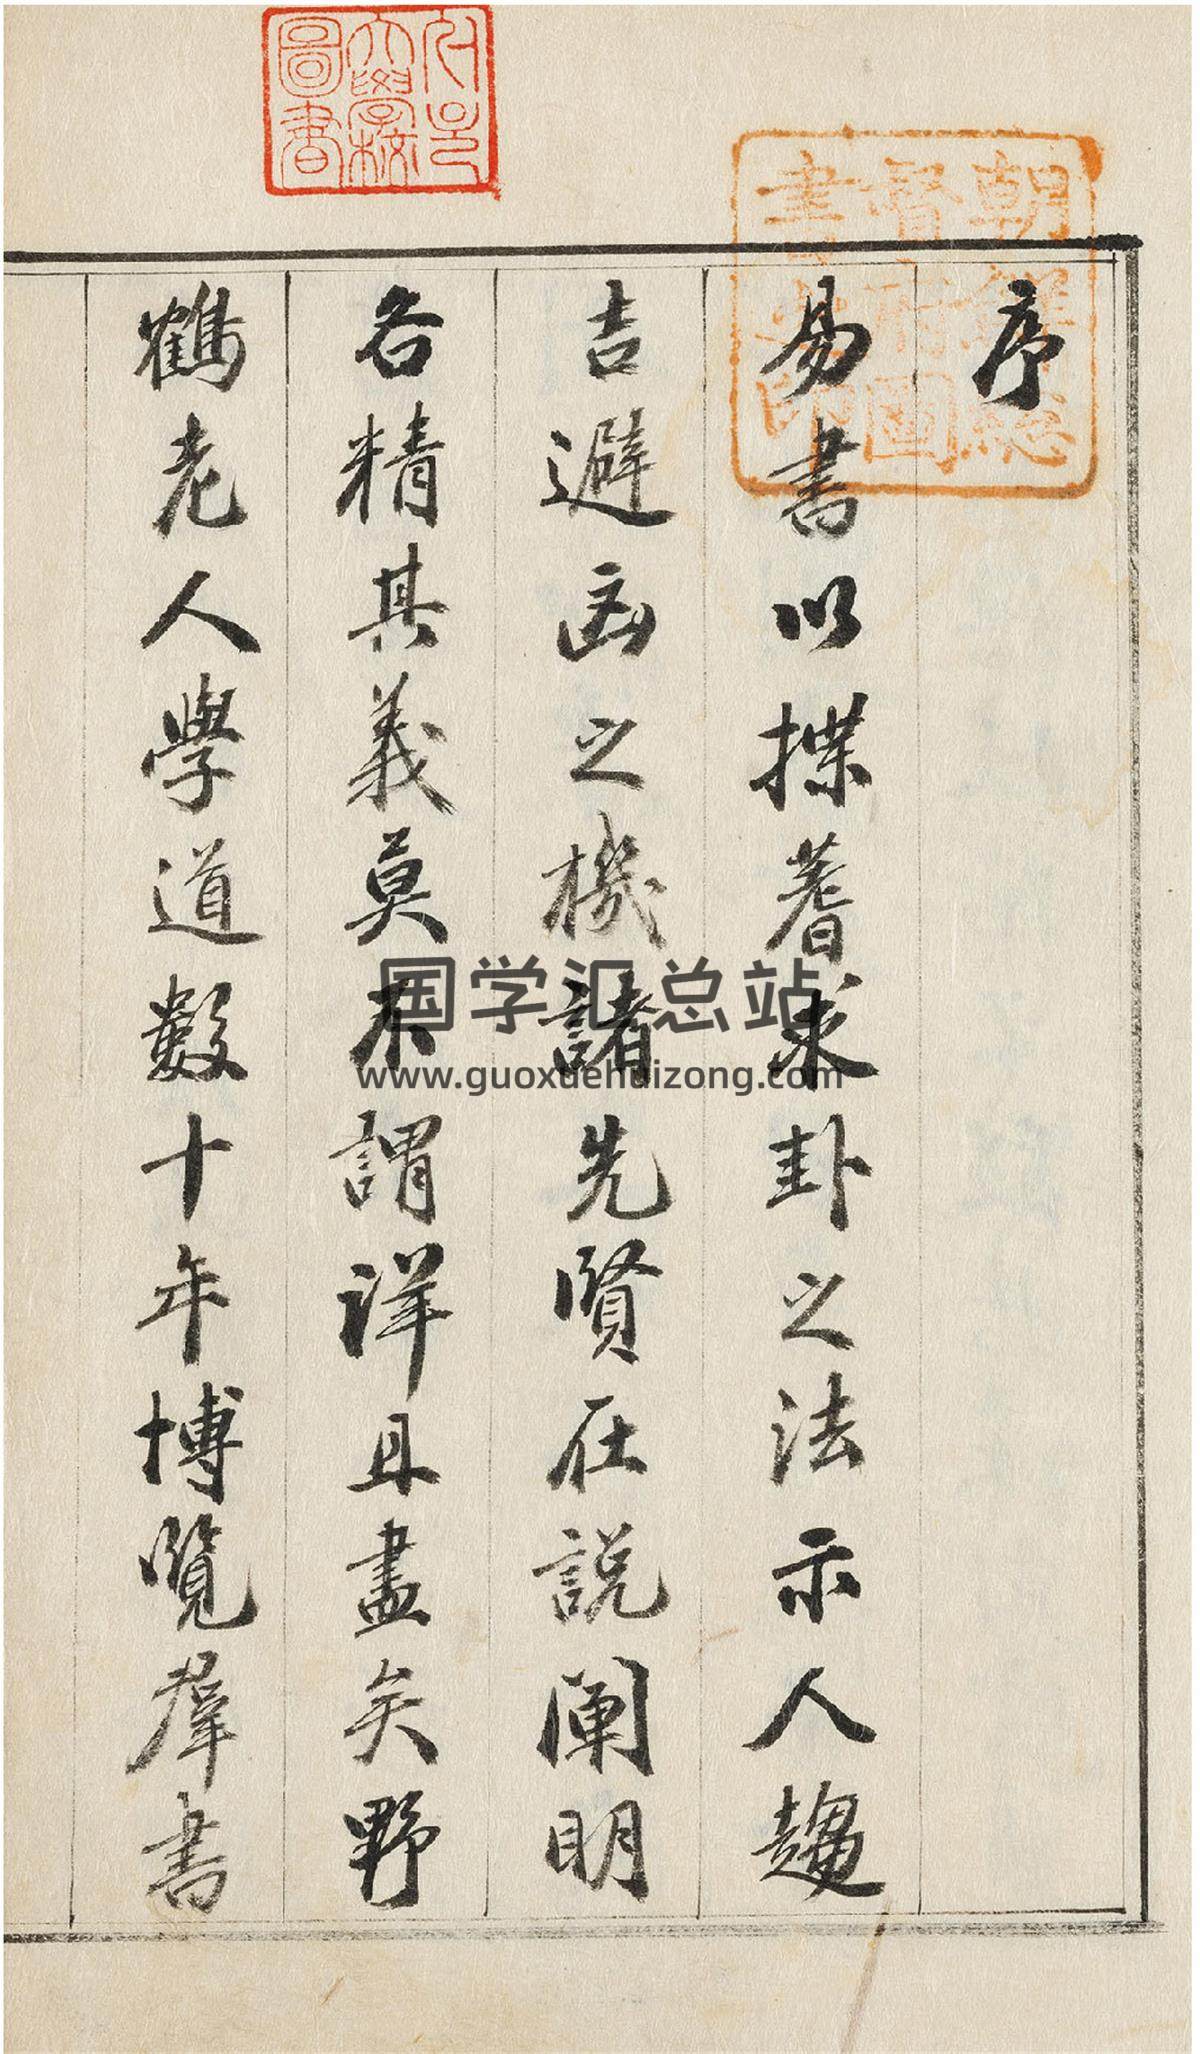 序
易書以揲蓍求卦之法示人趨
吉避凶之機諸先賢在說闡明
各精其義莫不謂詳且盡矣野
鶴老人學道數十年博覽羣書
朝鮮總
督府圖
書之印
大學校
圖書
国学汇总站
www.guoxuehuizong.com